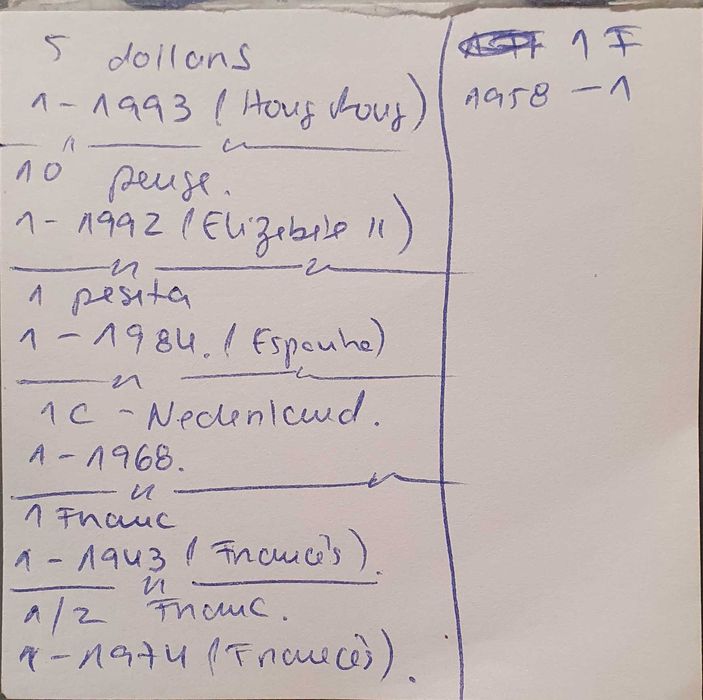 5 dollars
1 - 1993 (Hong Kong)
10 penge.
1 - 1992 (Elizebete II)
1 peseta
1 - 1984. (Espanha)
1 C - Nederland.
1 - 1968.
1 Franc
1 - 1943 (Francês).
1/2 Franc.
1 - 1974 (Francês).
1 F
1958 - 1